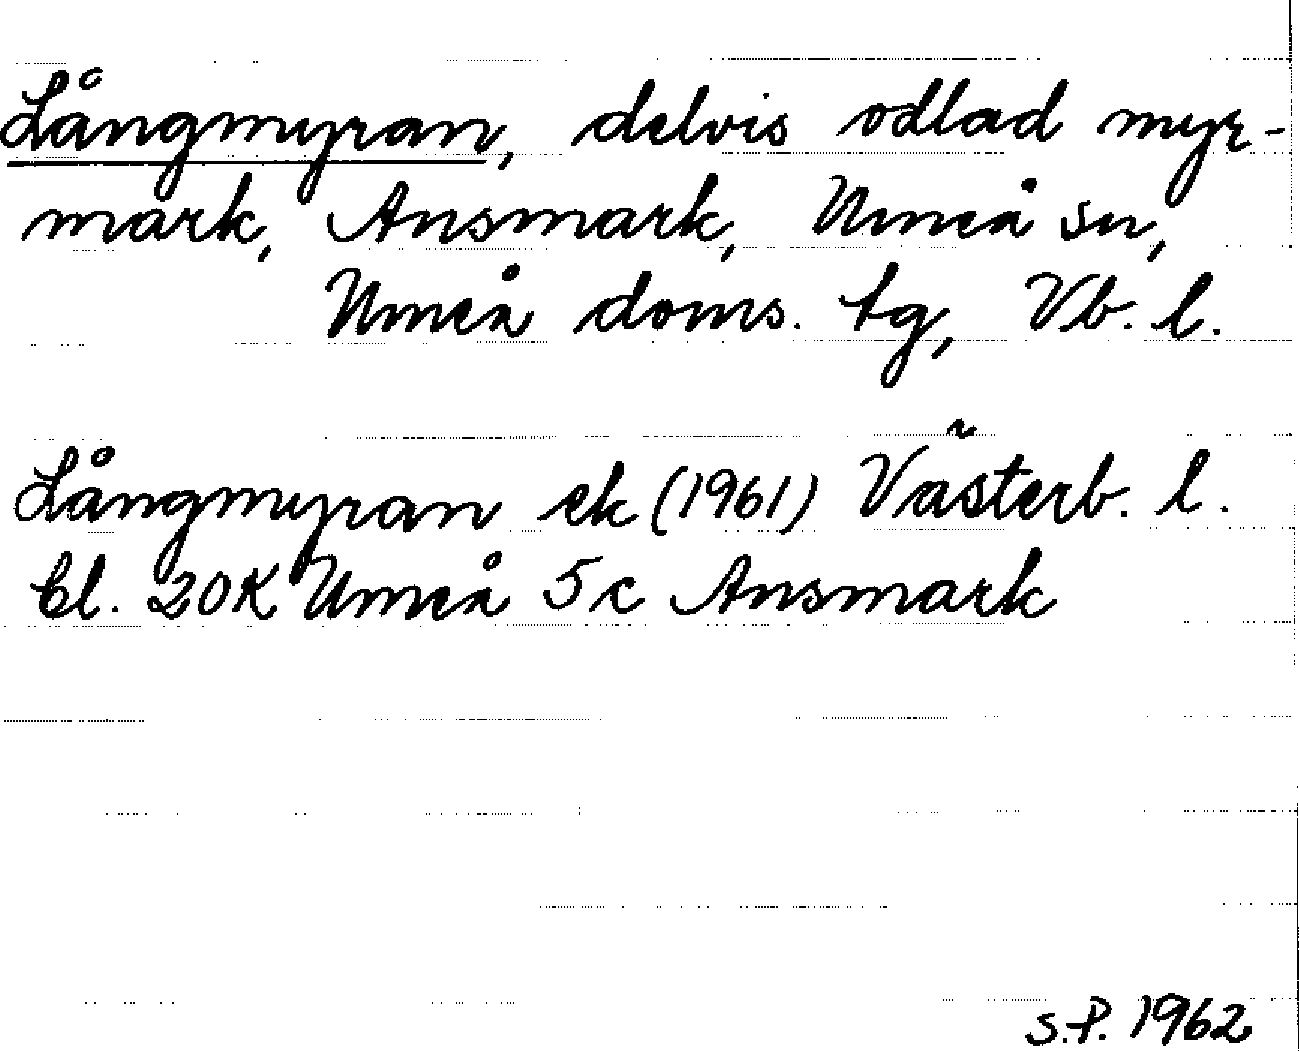 Långmyran, delvis odlad myr-
mark, Ansmark, Umeå sn,
Umeå doms. tg, Vb. l.
Långmyran ek (1961) Västerb. l.
bl. 20K Umeå 5c Ansmark
S.P. 1962